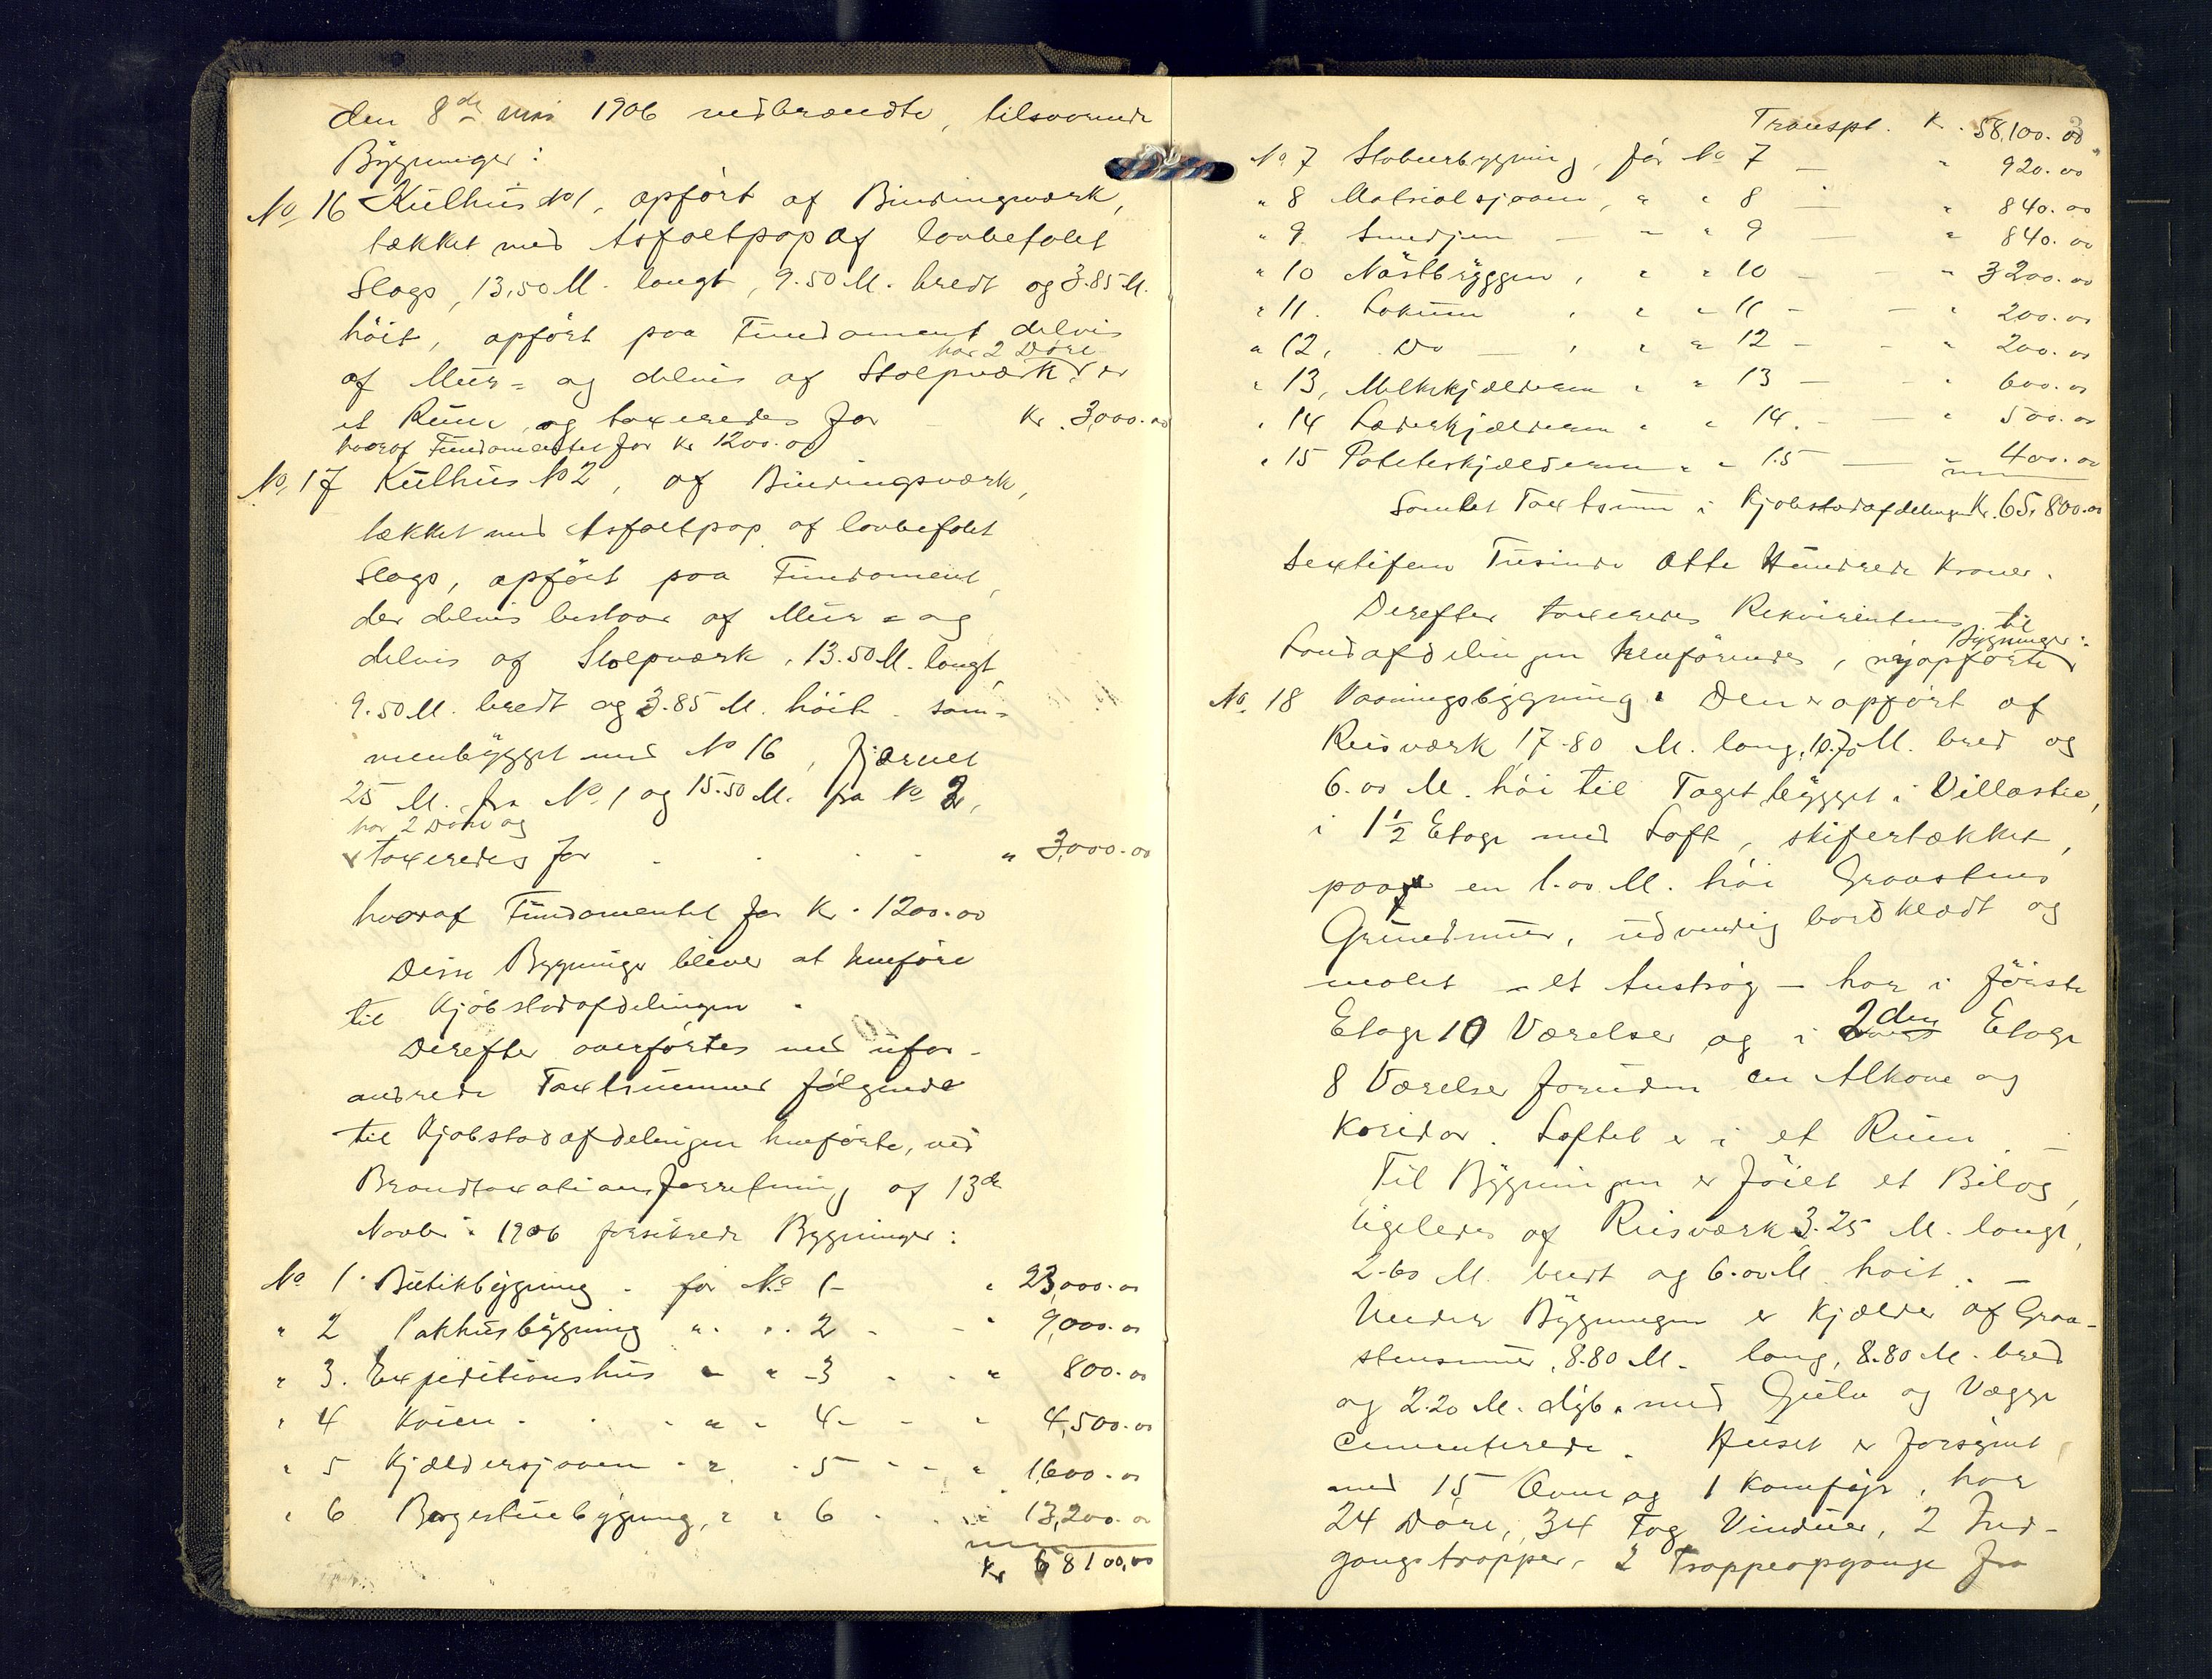 den 8de mai 1906 nedbrændte, tilsvarende
Bygninger:
No 16 Kulhus No 1, opført af Bindingsværk,
tækket med Asfaltpap af lovbefalet
Slags, 13,50 M. langt, 9.50 M. bredt og 3.85 M.
höit, opført paa Fundament delvis
har 2 Döre
af Mur= og delvis af Stolpværk, er
et Rum, og taxeredes for Kr. 3,000.00
hvoraf Fundamentet for Kr 1200.00
No. 17 Kulhus No 2, af Bindingsværk,
tækket med Asfaltpap af lovbefalet
Slags, opfört paa Fundament,
der delvis bestaar af Mur= og
delvis af Stolpværk, 13.50 M. langt,
9.50 M. bredt og 3.85 M. höit sam=
menbygget med No 16, fjærnet
25 M. fra No. 1 og 15.50 M. fra No 2,
har 2 Döre og
taxeredes for " 3,000.00
hvoraf Fundamentet for Kr. 1200.00
Disse Bygninger bliver at henføre
til Kjøbstadafdelingen.
Derefter overførtes med ufor-
andrede Taxtsummer følgende
til Kjøbstadafdelingen henførte, ved
Brandtaxationsforretning af 13de
Novbr. 1906 forsikrede Bygninger:
No 1. Butikbygning - før No 1 - " 23,000.00
" 2 Pakhusbygning " " 2 - " 9,000.00
" 3. Expeditionshus " " 3 - " 800.00
" 4 Kaien - " " 4 - " 4,500.00
" 5 Kjældersjaaen - " " 5 - " 1,600.00
" 6 Borgestuebygning, " " 6 - " 13,200.00
Kr 58100,00
Transpt. Kr. 58,100.00
No. 7 Stabursbygning, før No 7 - " 920.00
" 8 Materialsjaaen, " " 8 - " 840.00
" 9. Smedjen - " " 9 - " 840.00
" 10 Nöstbryggen, " " 10 - " 3200.00
" 11. Lokum , " " 11 - " 200.00
" 12, Do - , " " 12 - " 200.00
" 13, Melkekjælderen " " 13 - " 600.00
" 14 Læderkjælderen " " 14. - " 500.00
" 15 Poteteskjælderen " " 15 - 400.00
Samlet Taxtsum i Kjøbstadafdelingen Kr. 65,800.00
Sextifem Tusinde Otte Hundrede Kroner.
Derefter taxeredes Rekvirentens, til
Bygninger:
Landafdelingen henførende, nyopførte
No. 18 Vaaningsbygning. Den er opført af
Reisværk, 17.80 M. lang, 10.70 M. bred og
6.00 M. höi til Taget bygget i Villastil,
i 1 1/2 Etage med Loft, skifertækket,
paa en 1.00 M. höi Graastens
Grundmur, udvendig bordklædt og
malet - et Anströg - har i förste
Etage 10 Værelser og i 2den Etage
8 Værelser foruden en Alkove og
Koridor. Loftet er i et Rum -
Til Bygningen er föiet et Bilag,
ligeledes af Reisværk 3.25 M. langt,
2.60 M. bredt og 6.00 M. höit. -
Under Bygningen er Kjælder af Graa-
stensmur, 8.80 M. lang, 8.80 M. bred
og 2.20 M. dyb, med Gulv og Vægge
cementerede. Huset er forsynet
med 15 Ovne og 1 Komfyr, har
24 Döre, 34 Fag Vinduer, 2 Ind-
gangstrapper, 2 Trappeopgange fra